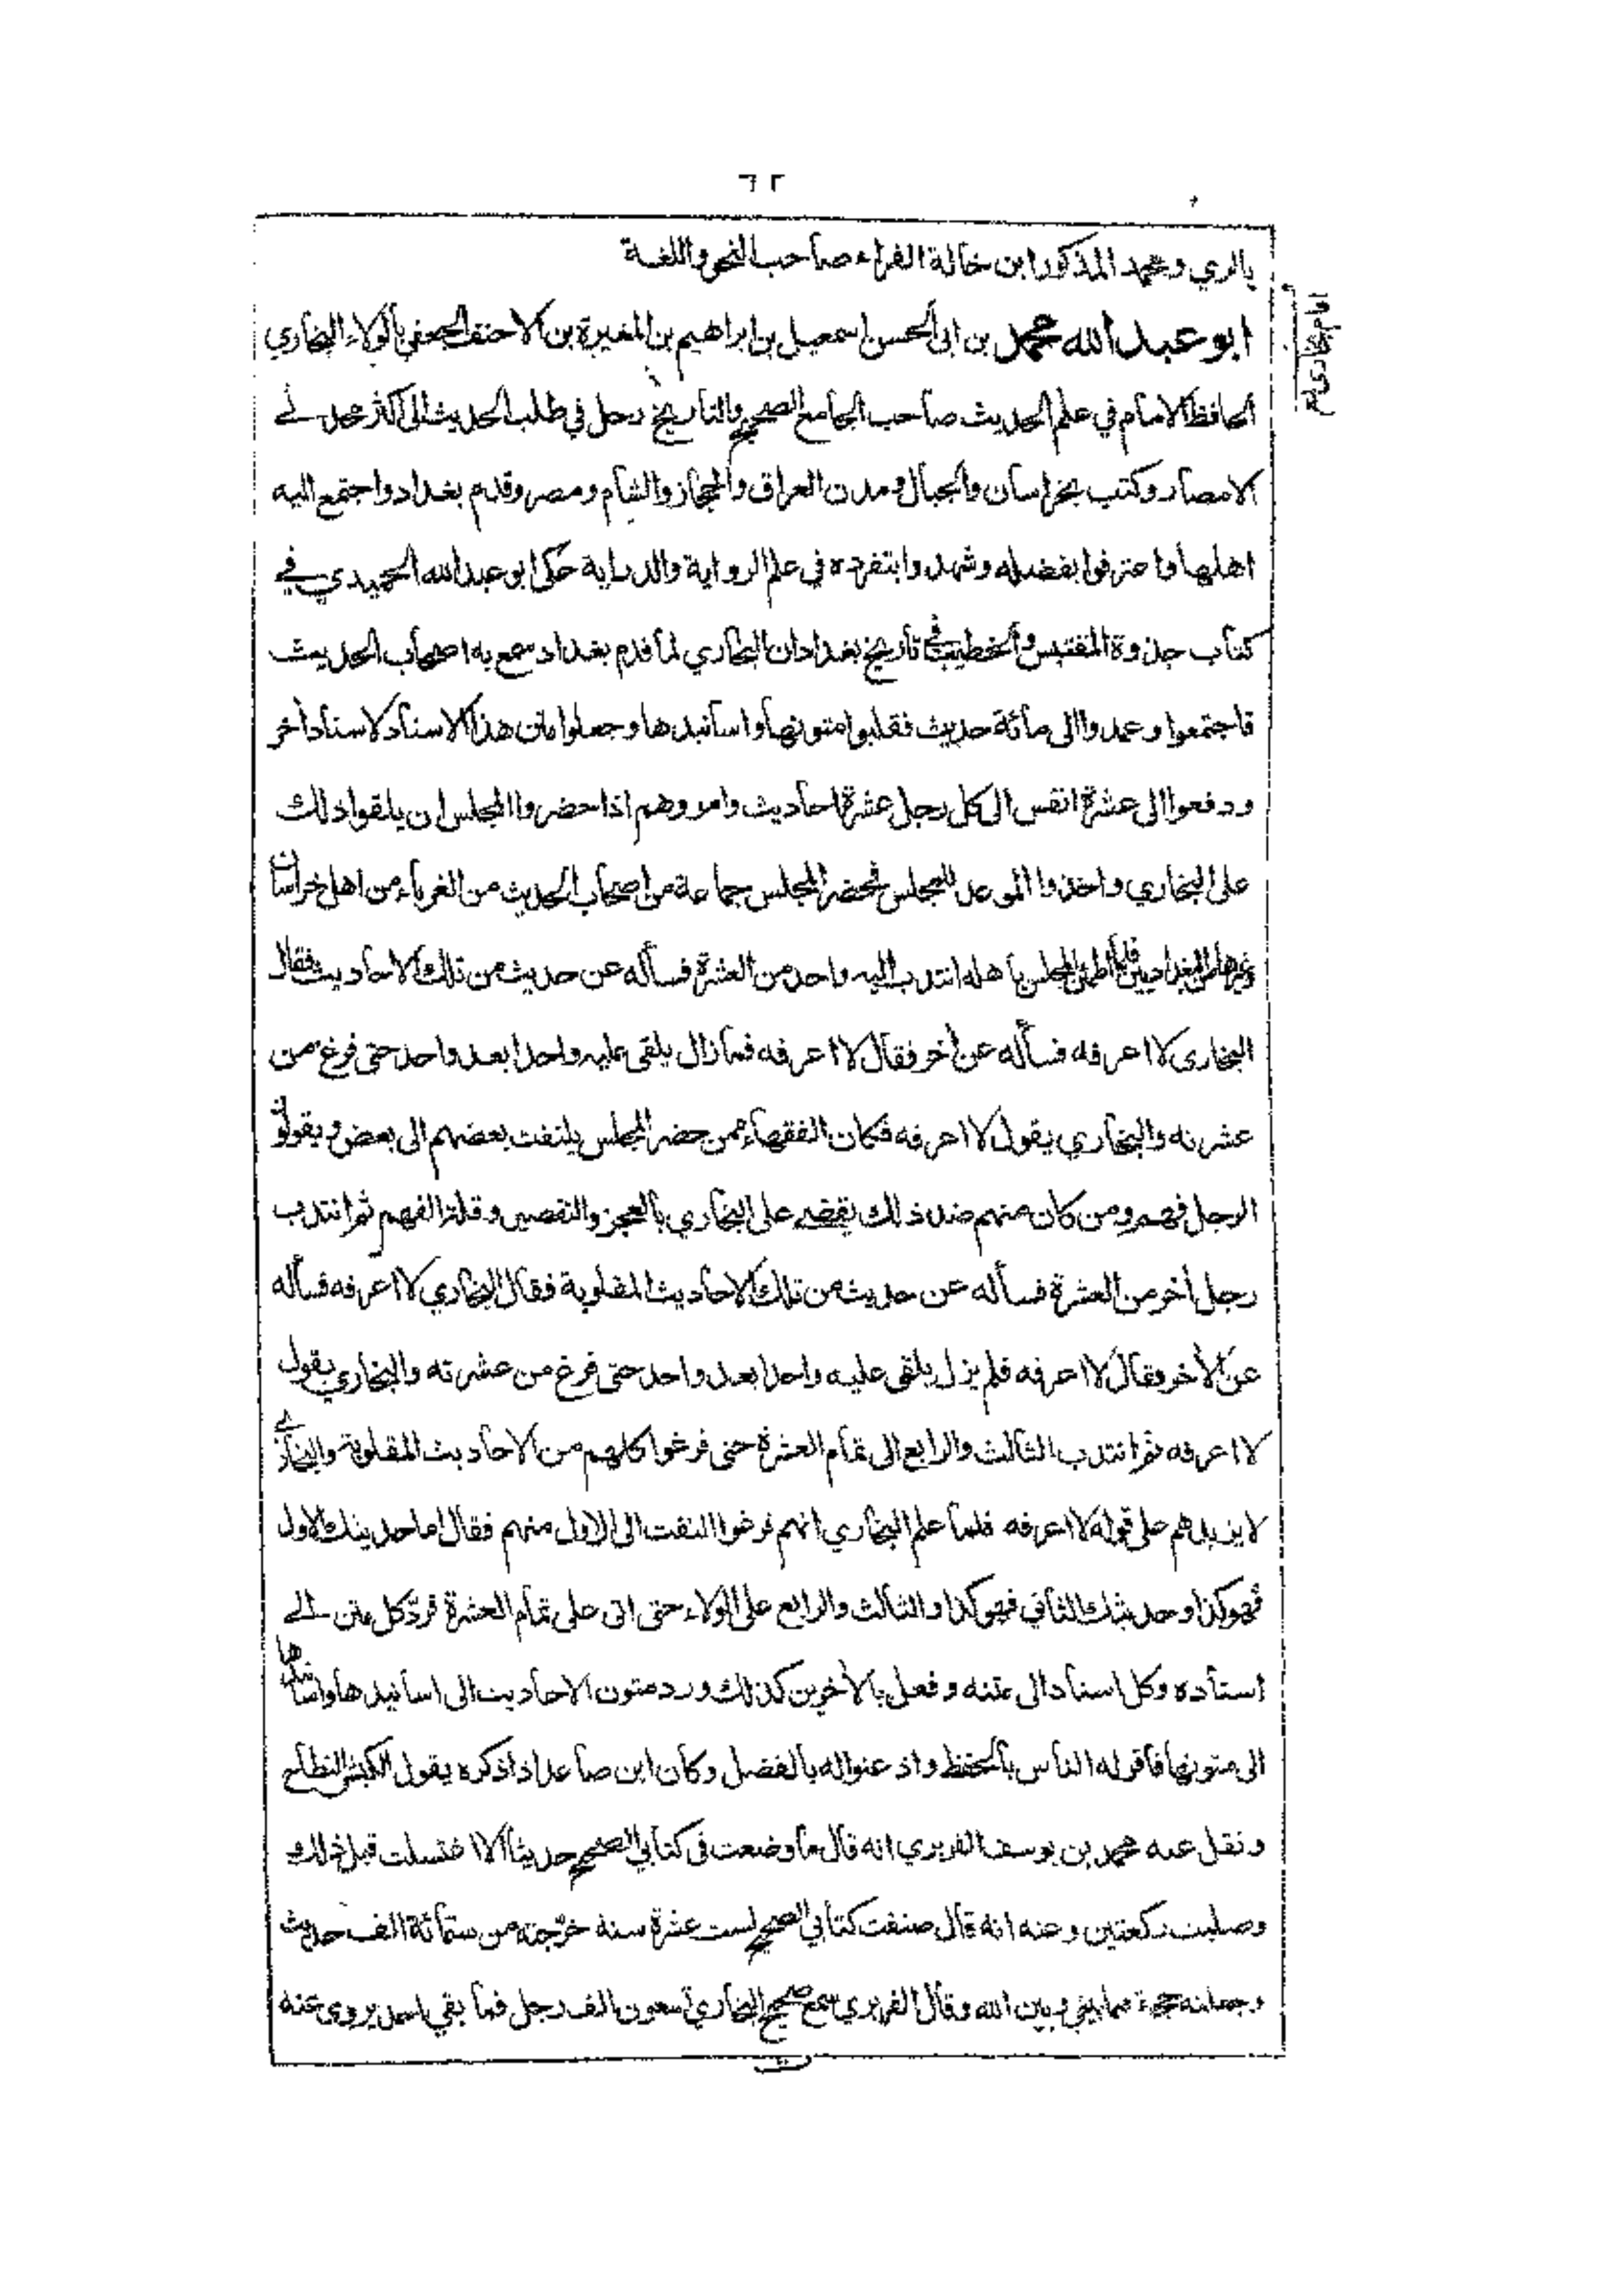 ٦٢
بالري ومحمد المذكور ابن خالة الفراء صاحب النحو واللغة
امام بخاري
ابو عبد الله محمد بن ابى الحسن اسمعيل بن ابراهيم بن المغيرة بن الاحنف الجعفي بالولاء البخاري
الحافظ الامام في علم الحديث صاحب الجامع الصحيح والتاريخ رحل في طلب الحديث الى اكثر محدثي
الامصار وكتب بخراسان والجبال ومدن العراق والحجاز والشام ومصر وقدم بغداد واجتمع اليه
اهلها واعترفوا بفضله وشهدوا بتفرده في علم الرواية والدراية حكى ابو عبد الله الحميدي في
كتاب جذوة المقتبس والخطيب في تاريخ بغداد ان البخاري لما قدم بغداد سمع به اصحاب الحديث
فاجتمعوا وعمدوا الى مائة حديث فقلبوا متونها واسانيدها وجعلوا متن هذا الاسناد لاسناد أخر
ودفعوا الى عشرة انفس الى كل رجل عشرة احاديث وامروهم اذا حضروا المجلس ان يلقوا ذلك
على البخاري واخذوا الموعد للمجلس فحضر المجلس جماعة من اصحاب الحديث من الغرباء من اهل خراسان
وغيرها من البغداديين فلما اطمأن المجلس باهله انتدب اليه واحد من العشرة فسأله عن حديث من تلك الاحاديث فقال
البخارى لا اعرفه فسأله عن أخر فقال لا اعرفه فما زال يلقى عليه واحدا بعد واحد حتى فرغ من
عشرته والبخاري يقول لا اعرفه فكان الفقهاء ممن حضر المجلس يلتفت بعضهم الى بعض ويقولون
الرجل فهم ومن كان منهم ضد ذلك يقضي على البخاري بالعجز والتقصير وقلة الفهم ثم انتدب
رجل أخر من العشرة فسأله عن حديث من تلك الاحاديث المقلوبة فقال البخاري لا اعرفه فسأله
عن الأخر فقال لا اعرفه فلم يزل يلقى عليه واحدا بعد واحد حتى فرغ من عشرته والبخاري يقول
لا اعرفه ثم انتدب الثالث والرابع الى تمام العشرة حتى فرغوا كلهم من الاحاديث المقلوبة والبخاري
لا يزيدهم على قوله لا اعرفه فلما علم البخاري انهم فرغوا التفت الى الاول منهم فقال اما حديثك الاول
فهو كذا وحديثك الثاني فهو كذا والثالث والرابع على الولاء حتى اتى على تمام العشرة فردّ كل متن الى
اسناده وكل اسناد الى متنه وفعل بالأخرين كذلك ورد متون الاحاديث الى اسانيدها واسانيدها
الى متونها فاقر له الناس بالحفظ واذعنوا له بالفضل وكان ابن صاعد اذا ذكره يقول الكبش النطاح
ونقل عنه محمد بن يوسف الفربري انه قال ما وضعت فى كتابي الصحيح حديثا الا اغتسلت قبل ذلك
وصليت ركعتين وعنه انه قال صنفت كتابي الصحيح لست عشرة سنة خرّجته من ستمائة الف حديث
وجعلته حجة فيما بيني وبين الله وقال الفربري سمع صحيح البخاري تسعون الف رجل فما بقي احد يروى عنه